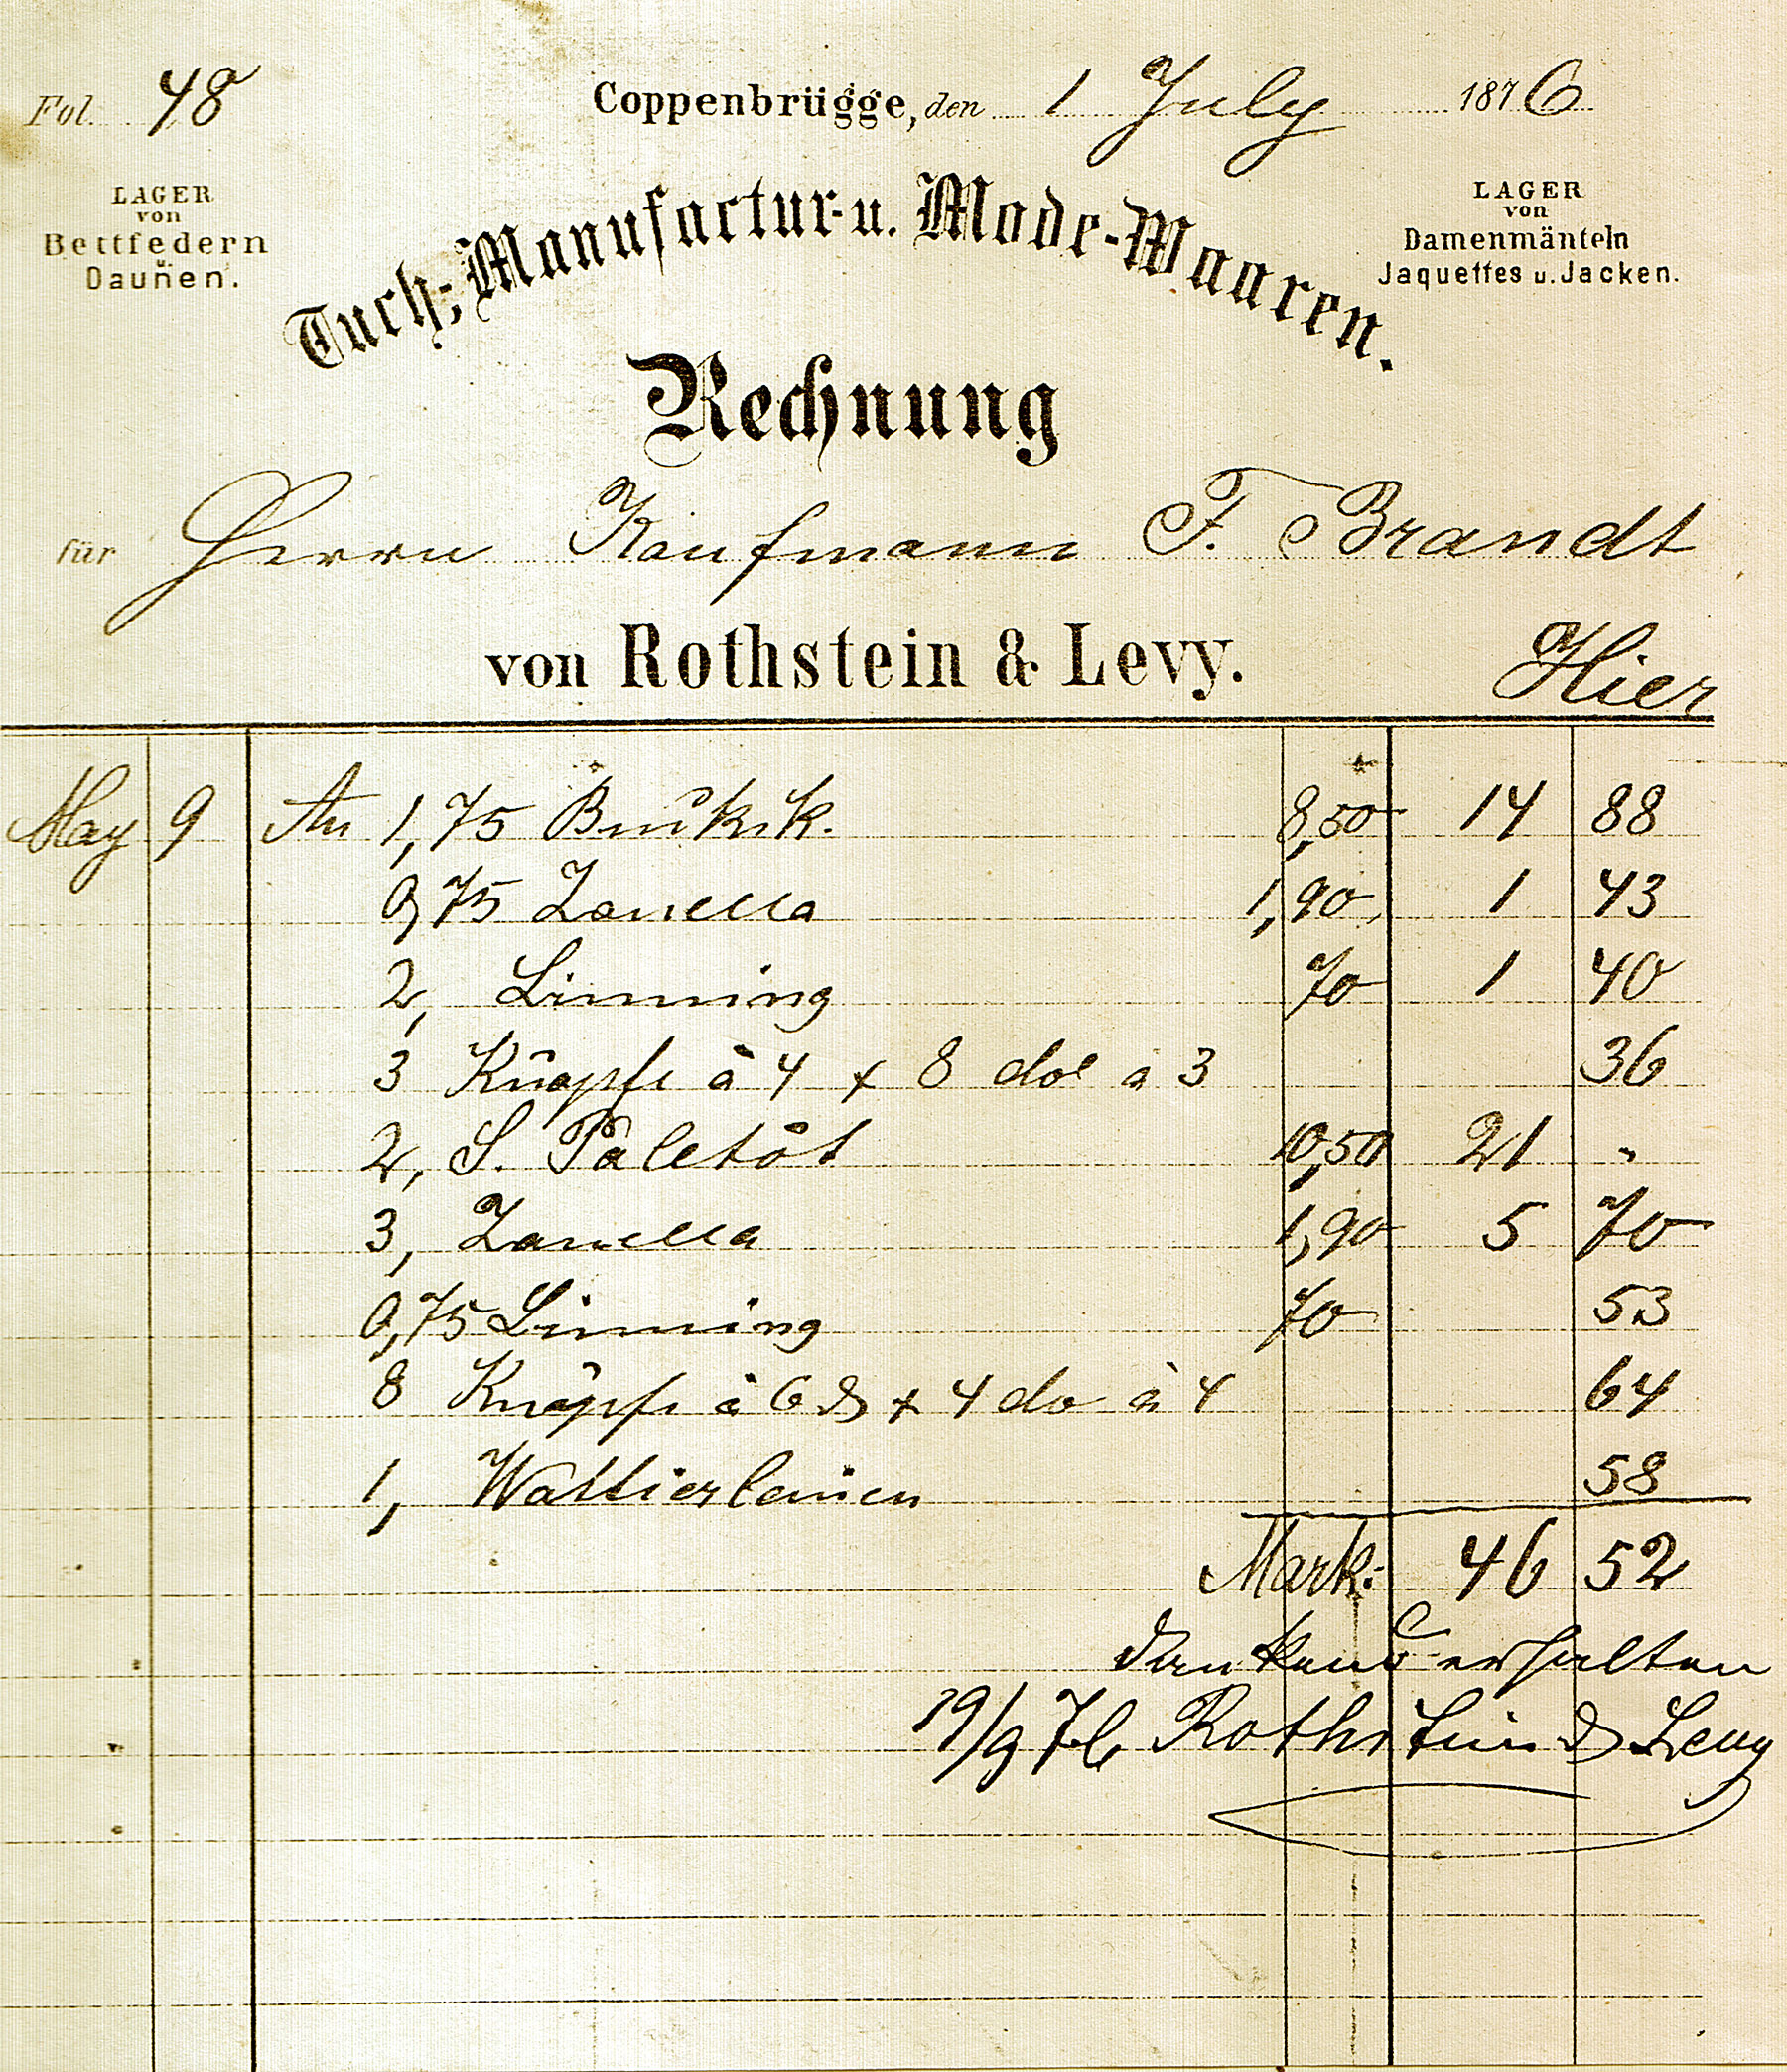 Fol. 48
Coppenbrügge, den 1 July 1876
LAGER
von
Bettfedern
u.
Daunen.
LAGER
von
Damenmänteln
Jaquettes u. Jacken.
Tuch-, Manufactur- u. Mode-Waaren.
Rechnung
für Herrn Kaufmann F. Brandt
von Rothstein & Levy. Hier
May 9 An 1,75 Bucksk. 8,50 14 88
0,75 Zanella 1,90 1 43
2, Linning 70 1 40
3 Knöpfe à 4 + 8 do a 3 36
2, S. Paletôt 10,50 21 "
3, Zanella 1,90 5 70
0,75 Linning 70 53
8 Knöpfe à 6 & + 4 do à 4 64
1, Wattierleinen 58
Mark: 46 52
dankend erhalten
19/9 76 Rothstein & Levy